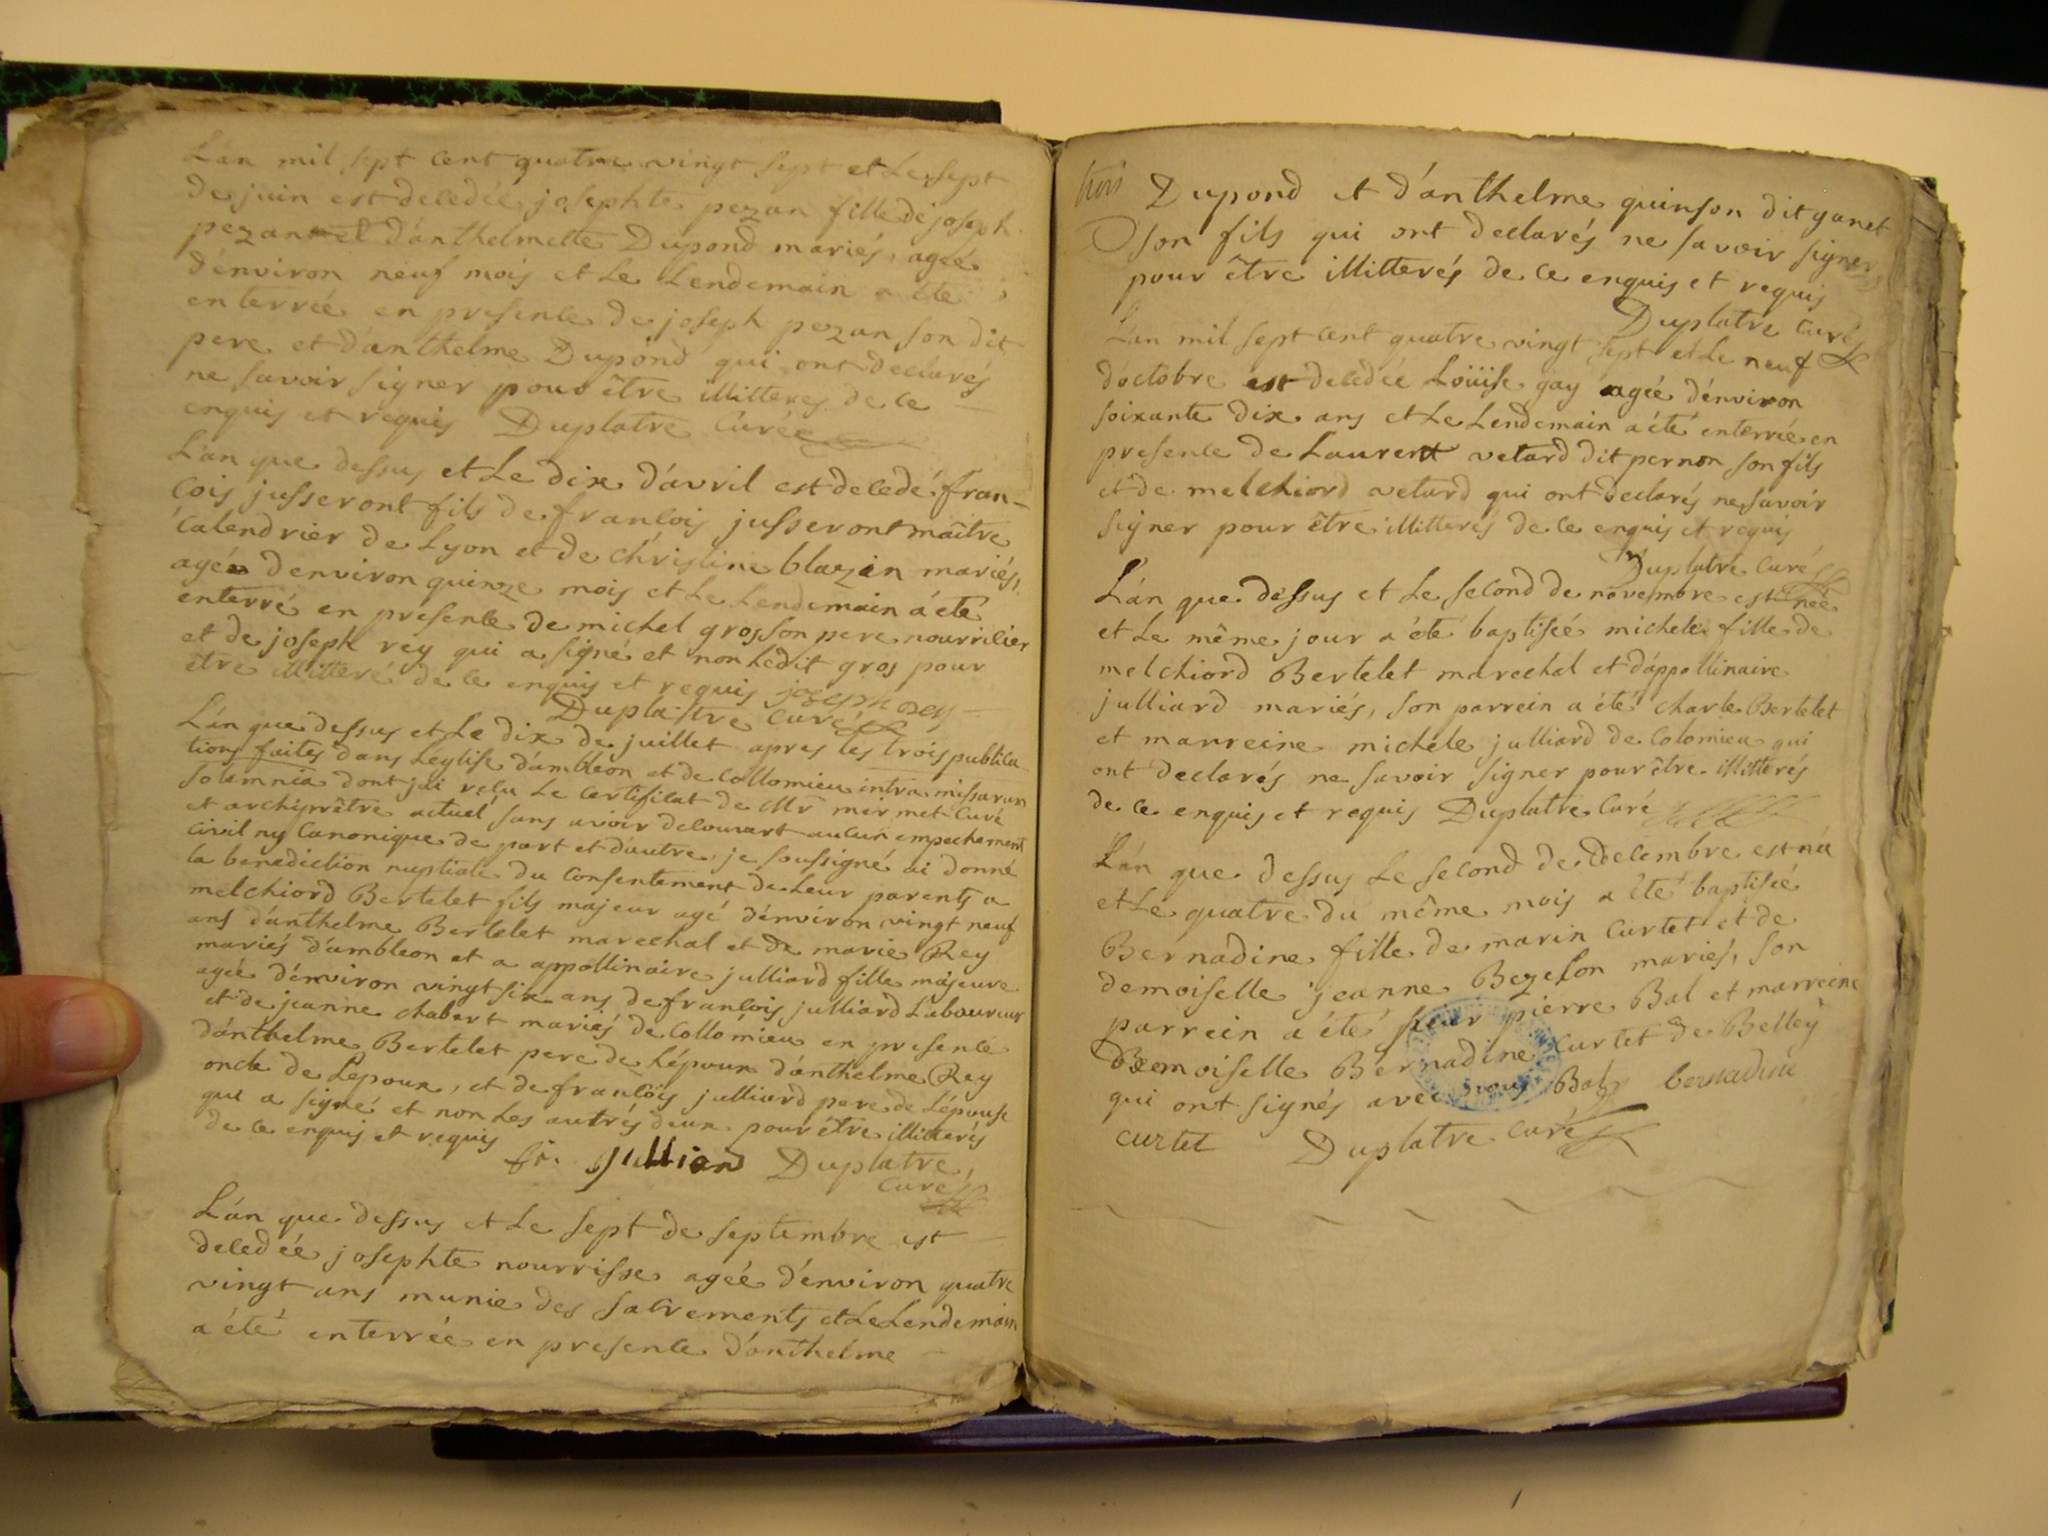 L'an mil sept cent quatre vingt sept et le sept
de juin est decedée josephte pezan fille de joseph
pezan et d'anthelmette Dupond mariés, ageé
d'environ neuf mois et le Lendemain a été
enterrée en presence de joseph pezan son dit
pere et d'anthelme Dupond qui ont declarés
ne savoir signer pour être illitteres de ce
enquis et requis Duplatre Curé
L'an que dessus et Le dix d'avril est decedé fran-
cois jusseront fils de francois jusseront maître
Calendrier de Lyon et de christine blazin mariés,
agé d'environ quinze mois et Le Lendemain a été
enterré en presence de michel gros son pere nourricier
et de joseph rey qui a signé et non Ledit gros pour
être illitteré de ce enquis et requis joseph rey
Duplastre Curé
L'an que dessus et Le dix de juillet apres les trois publica
tions faites dans Leglise d'ambleon et de Collomieu intra missarum
solemnia dont j'ai reçu Le Certificat de Mr mermet Curé
et archiprêtre actuel sans avoir decouvert aucun empechement
Civil ny Canonique de part et d'autre, je soussigné ai donné
la benediction nuptiale du Consentement de Leur parents a
melchiord Bertelet fils majeur agé d'environ vingt neuf
ans d'anthelme Bertelet marechal et de marie Rey
mariés d'ambleon et a appollinaire julliard fille majeure
ageé d'environ vingt six ans de francois julliard Laboureur
et de jeanne chabert mariés de Collomieu en presence
d'anthelme Bertelet pere de L'époux d'anthelme Rey
oncle de L'epoux, et de francois julliard pere de L'épouse
qui a signé et non Les autrés deux pour être illitterés
de ce enquis et requis fr. jullian Duplatre,
Curé
L'an que dessus et Le sept de septembre est
decedée josephte nourrisse ageé d'environ quatre
vingt ans munie des sacrements et Le Lendemain
a été enterrée en presence d'anthelme
trois Dupond et d'anthelme quinson dit ganet
son fils qui ont declarés ne savoir signer
pour être illitterés de ce enquis et requis
Duplatre Curé
L'an mil sept cent quatre vingt sept et Le neuf
d'octobre est decedée Loüise gay agée d'environ
soixante dix ans et Le Lendemain a été enterrée en
presence de Laurent vetard dit pernon son fils
et de melchiord vetard qui ont declarés ne savoir
signer pour être illitterés de ce enquis et requis
Duplatre Curé
L'an que dessus et Le second de novembre est née
et Le même jour a été baptisée michele fille de
melchiord Bertelet marechal et d'appollinaire
julliard mariés, son parrein a été charle Bertelet
et marreine michele julliard de Colomieu qui
ont declarés ne savoir signer pour être illitterés
de ce enquis et requis Duplatre Curé
L'an que dessus Le second de decembre est née
et Le quatre du même mois a été baptisée
Bernadine fille de marin Curtet et de
demoiselle jeanne Bezeson mariés, son
parrein a été sieur pierre Bal et marreine
Demoiselle Bernadine Curtet de Belley
qui ont signés avec nous Bal bernadine
curtet Duplatre Curé